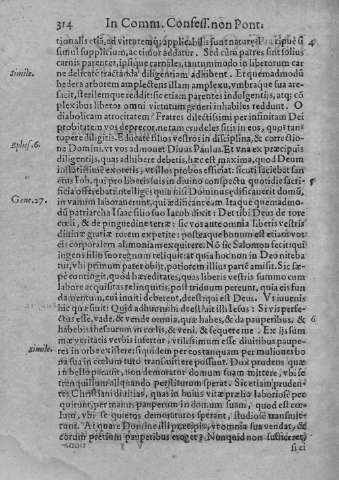 314 In Comm. Confess. non Pont.
tionalis etsi, ad virtutemq; applicabilis sunt naturę
simul supplicium, ac timor addatur. Sed cùm patres sint solius 4
carnis parentes, ipsique carnales, tantummodo in liberorum car
ne delicatè tractanda diligentiam adhibent. Et quemadmodũ
Simile.
hedera arborem amplectens illam amplexu, vmbraque sua are-
facit, sterilemque reddit: sic etiam parentes indulgentijs, atq; cõ
plexibus liberos omni virtutum generi inhabiles reddunt. O
diabolicam atrocitatem! Fratres dilectissimi per infinitam Dei
probitatem vos deprecor, ne tam crudeles sitis in eos, quos tan-
topere diligitis. Educate filios vestros in disciplina, & correctio-
Ephes. 6.
ne Domini, vt vos admonet Diuus Paulus. Et vna ex præcipuis
diligentijs, quas adhibere debetis, hæc est maxima, quod Deum
instantissimè exoretis, vt illos probos efficiat: sicuti faciebat san
ctus Iob, qui pro liberis suis in diuino conspectu quotidie sacri- 5
ficia offerebat: intelligens quia nisi Dominus ædificauerit domũ,
in vanum laborauerunt, qui ædificant eam. Itaque quemadmo-
Gene. 27.
dũ patriarcha Isaac filio suo Iacob dixit: Det tibi Deus de rore
cœli, & de pinguedine terræ: sic vos ante omnia liberis vestris
diuinæ gratiæ rorem expetite: posteaque bonum est etiam vt
eis corporalem alimoniam exquirere. Nõ sic Salomon fecit qui
ingens filio suo regnum reliquit: at quia hoc non in Deo niteba
tur, vbi primum pater obijt, potiorem illius partē amisit. Sic sæ-
pè contingit, quod hæreditates, quas liberis vestris summo cum
labore acquisitas relinquitis, post triduum pereunt, quia eis fun
damentum, cui inniti deberent, deest: qui est Deus. Vt iuuenis
hic quæsiuit: Quid adhuc mihi deest? ait illi Iesus: Si vis perfe-
ctus esse, vade, & vende omnia, quæ habes, & da pauperibus, & 6
habebis thesaurum in cœlis, & veni, & sequere me. Ex ijs sum
mæ veritatis verbis infertur, vtilissimum esse diuitibus paupe-
Simile.
res in orbe existere: siquidem per eos tanquam per muliones bo
na sua in cœlum tutò transmittere possunt. Dux prudens quæ
in bello præacit, non demoratur domum suam mittere, vbi se
tranquillum aliquando persiturum sperat. Sic etiam pruden-
tes Christiani diuitias, quas in huius vitæ prælio laboriosè per
quirunt, per manũ pauperum in domum suam, quod est cœ-
lum, vbi se quietos demoraturos sperant, studiosè transmit-
tunt. At quare Domine illi præcipis, vt omnia sua vendat, &
eorum pretium pauperibus eroget? Nunquid non sufficeret,
si ei